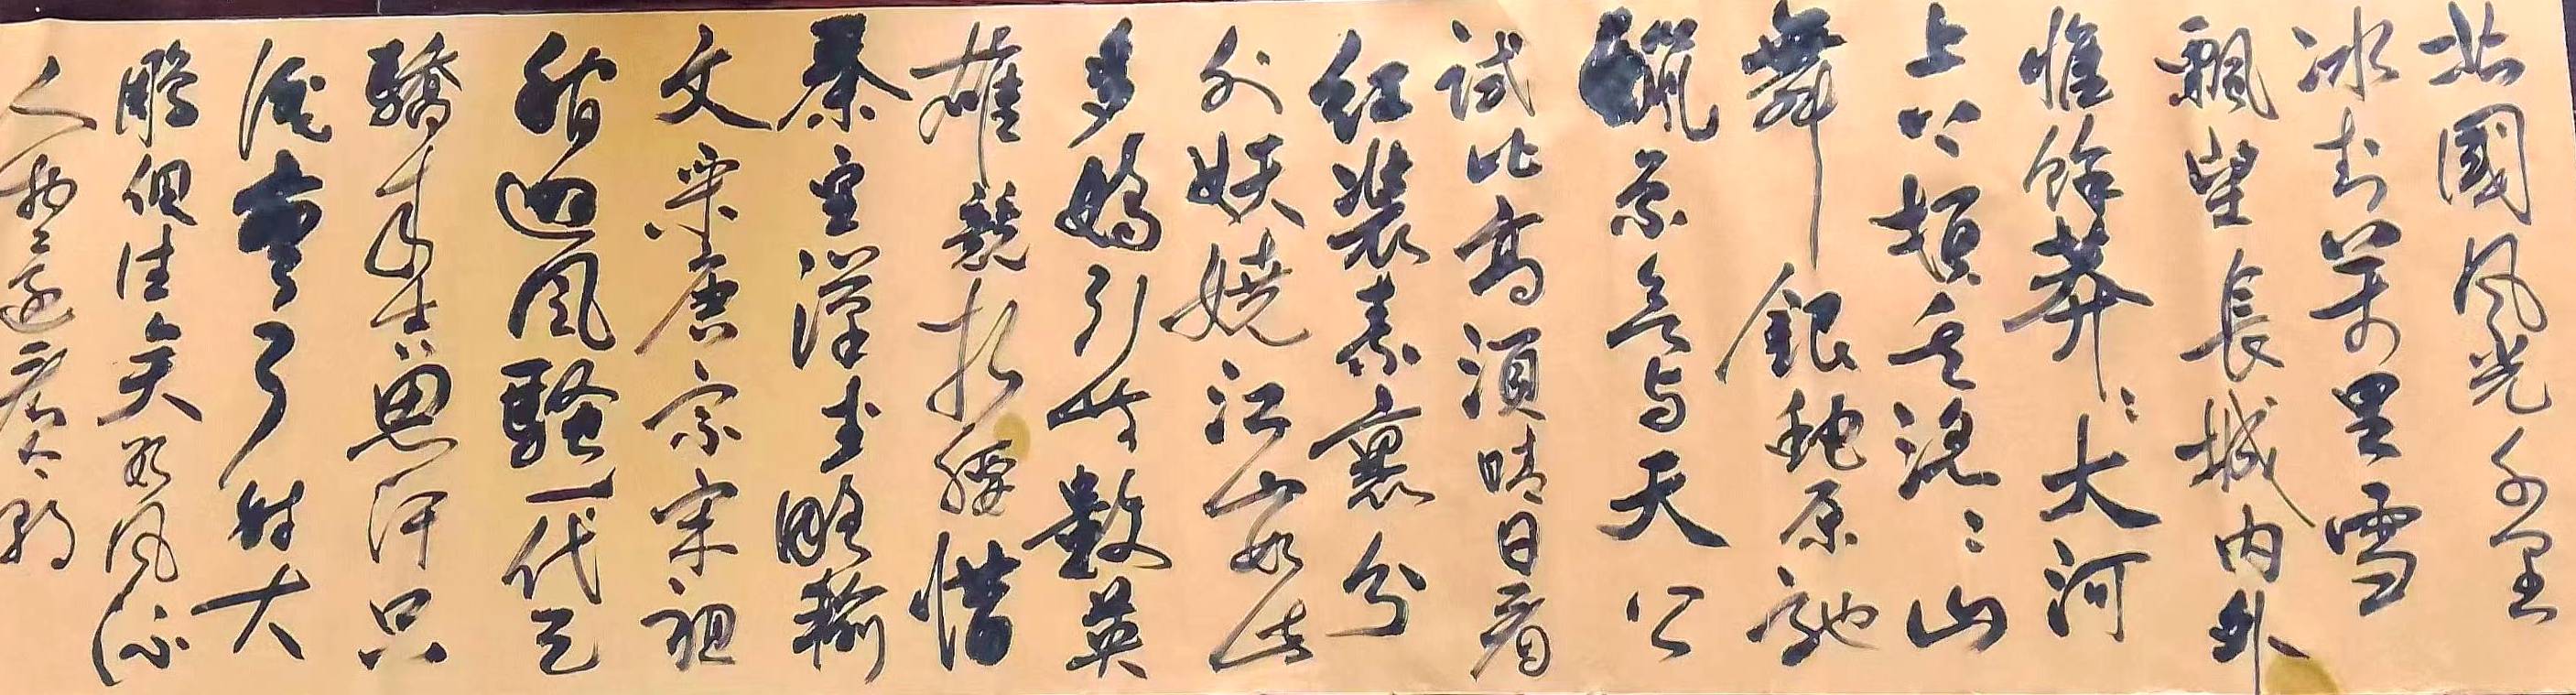 北國风光千里
冰封萬里雪
飄望長城内外
惟餘莽〻大河
上下頓失滔〻山
舞銀蛇原馳
蠟象欲与天公
試比高須晴日看
红裝素裹分
外妖嬈江山如此
多嬌引无數英
雄競折腰惜
秦皇漢武略輸
文采唐宗宋祖
稍遜风騷一代天
驕成吉思汗只
識彎弓射大
鵰俱往矣数风流
人物還看今朝